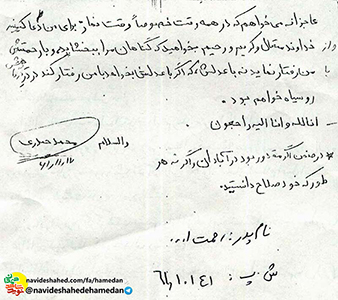 عاجزانه می‌خواهم که در همه وقت خصوصاً وقت نماز برای من دعا کنید
و از خداوند متعال و کریم و رحیم بخواهید که گناهان مرا ببخشاید و با رحمتش
با من رفتار نماید نه با عدلش، که اگر با عدلش بخواهد با من رفتار کند در
روسیاه خواهم بود.
انا لله و انا الیه راجعون
والسلام
* در ضمن اگر دور بود در آبادان و اگر نه هر
طور که خود صلاح دانستید.
محمد حیدری
نام پدر: رحمت ا...
ش پ:
navideshahed.com/fa/hamedan
@navideshahedehamedan